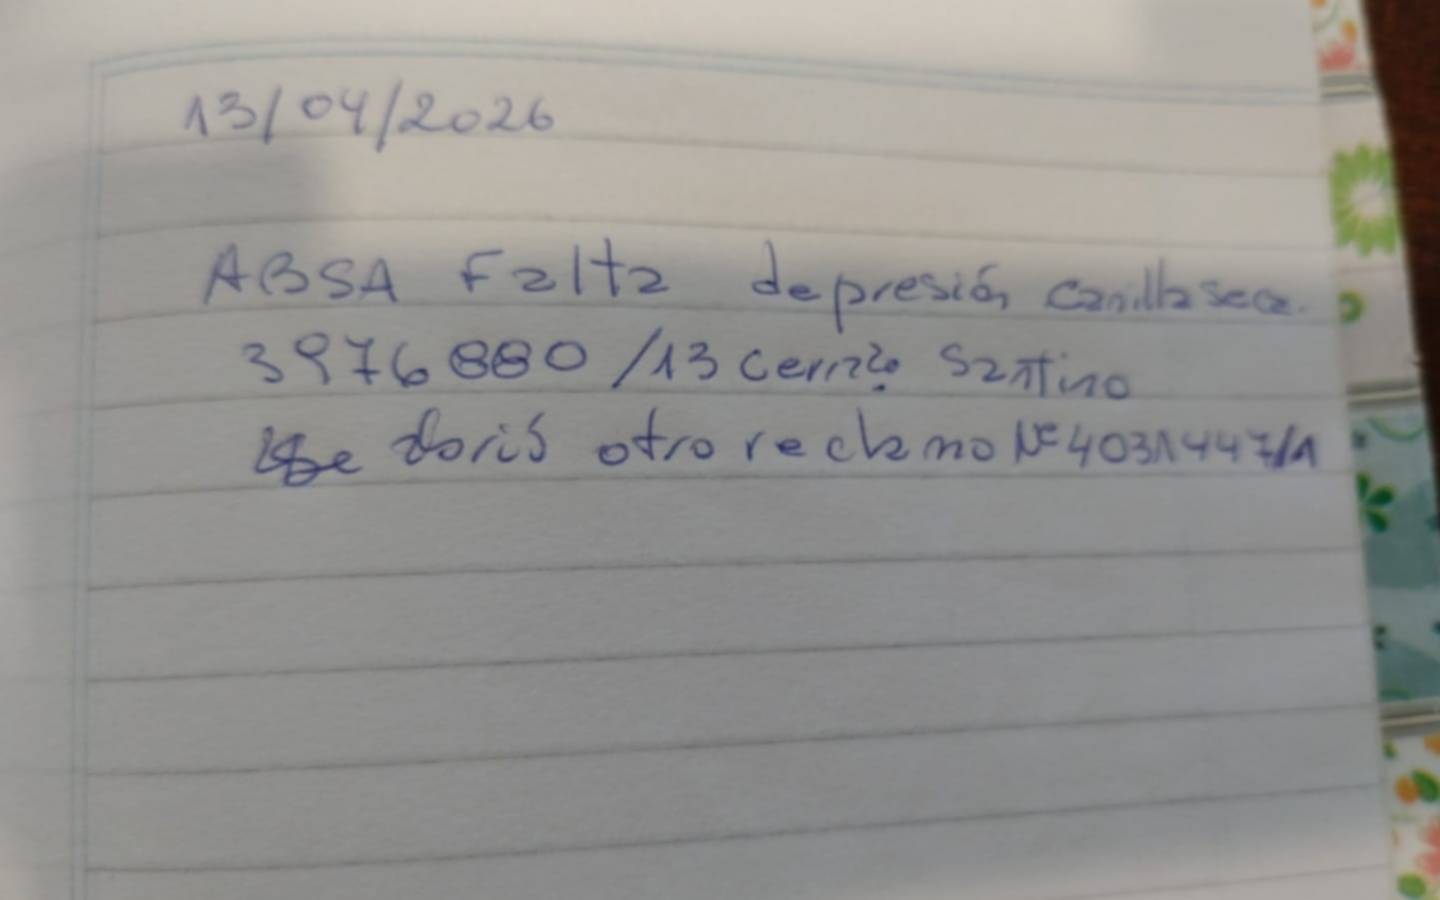 13/04/2026
ABSA Falta depresión canilla seca.
3976880/13 cerrado Santino
abris otro reclamo Nº 4031447/1